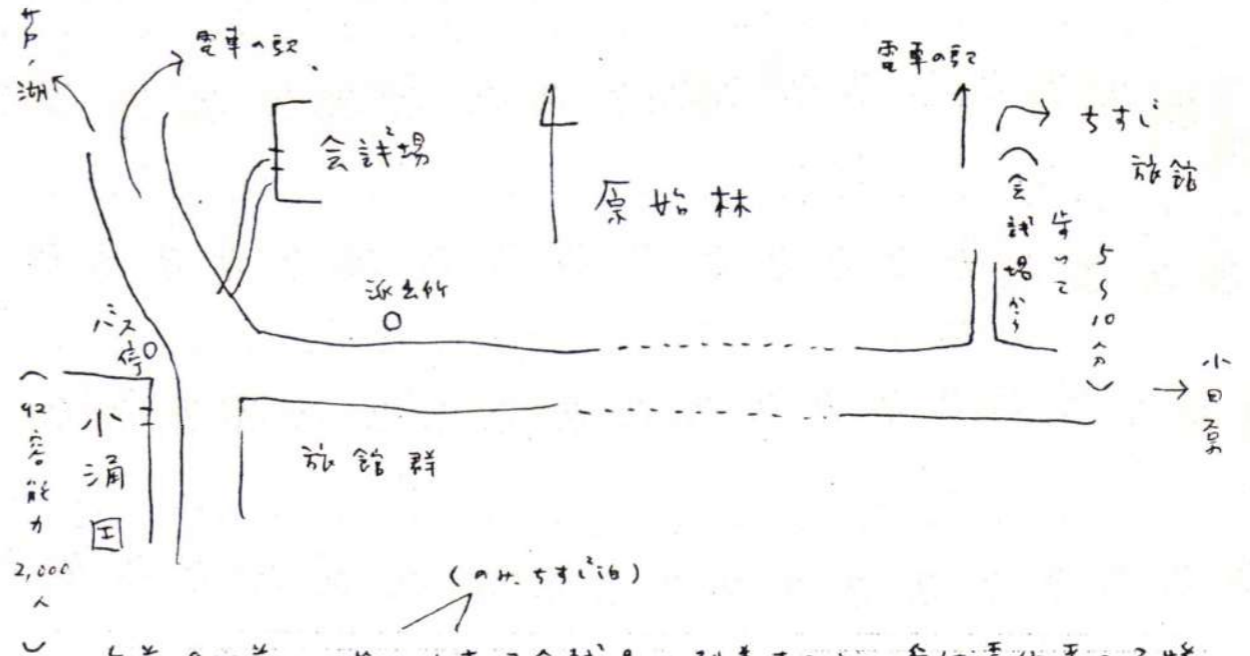 芦ノ湖
電車の駅
会議場
原始林
電車の駅
ちすじ
旅館
(会議場から
歩いて
5〜10分)
派出所
バス停
小涌園
(収容能力
2,000人)
旅館群
→小田原
(のみ、ちすじ泊)